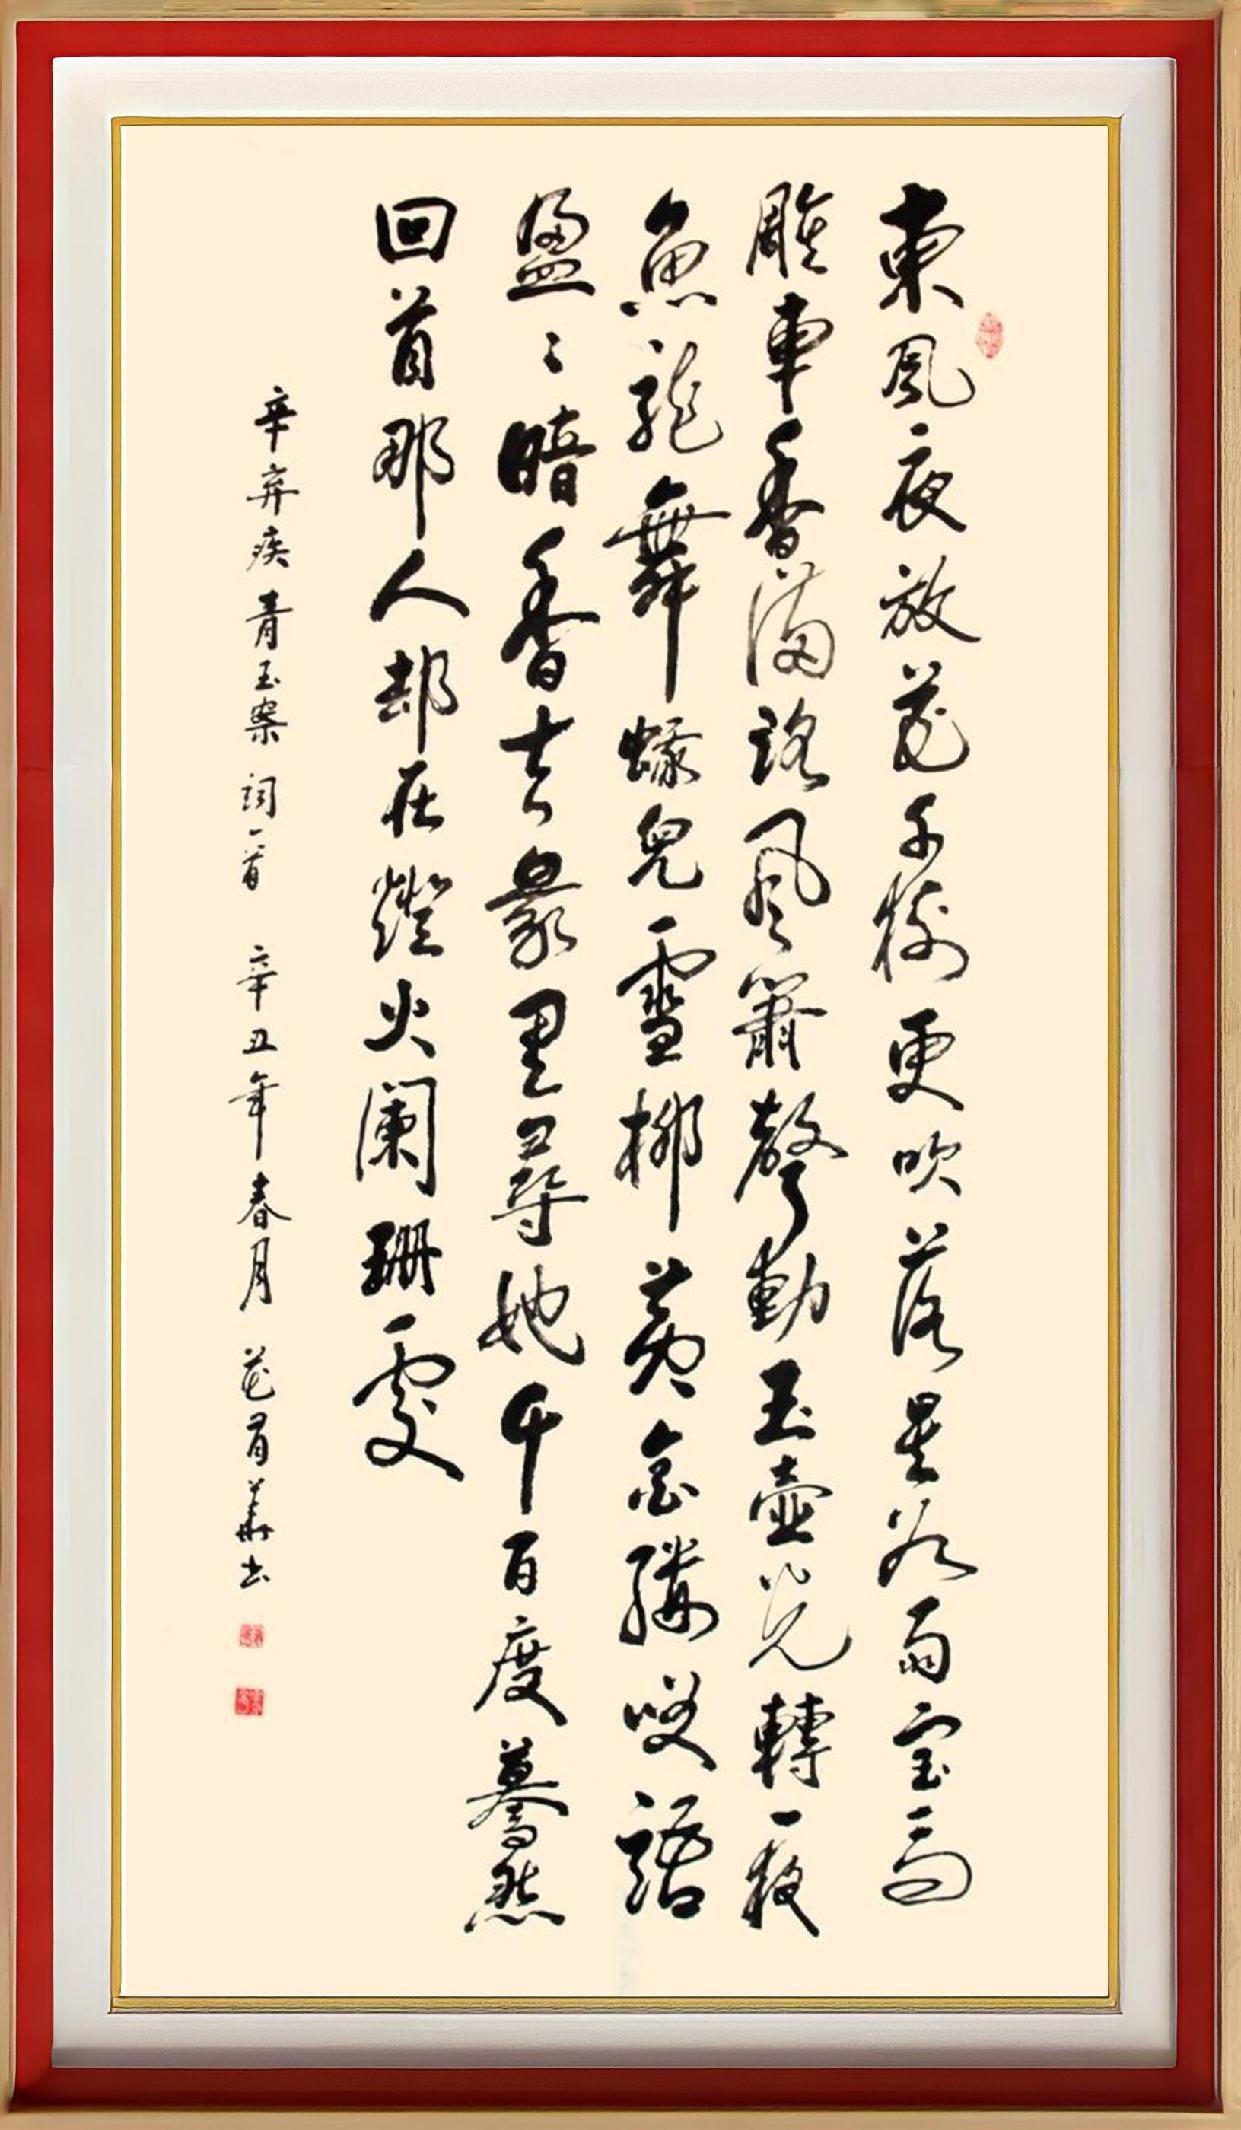 東風夜放花千樹更吹落星如雨宝馬
雕車香滿路鳳簫聲動玉壺光轉一夜
魚龍舞蛾兒雪柳黄金縷咲語
盈〻暗香去衆里尋她千百度驀然
回首那人却在燈火闌珊處
辛弃疾青玉案詞一首 辛丑年春月 華书